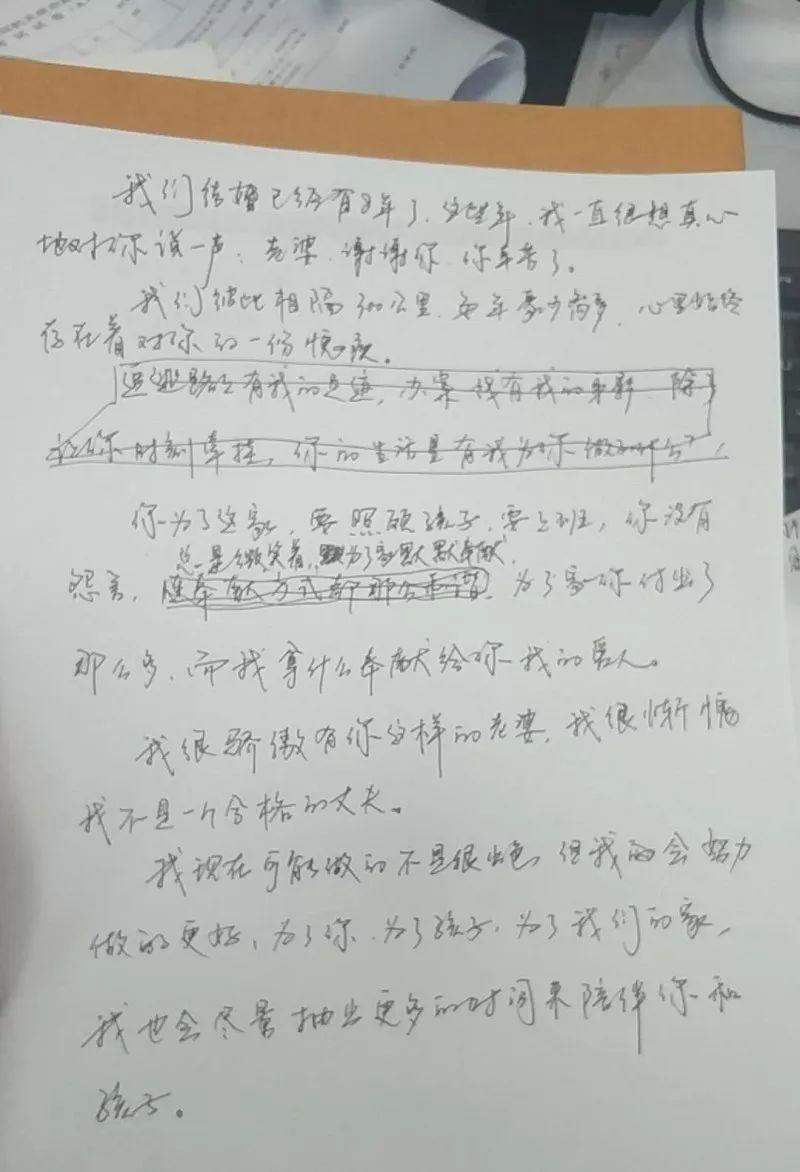 我们结婚已经有8年了、这些年、我一直很想真心
地对你说一声：老婆、谢谢你、你辛苦了。
我们彼此相隔300公里、每年聚少离多、心里始终
存在着对你的一份愧疚。
追逃路上有我的足迹，办案 有我的身影、除了
让你时刻牵挂，你的生活里有我为你做
你为了这家，要照顾孩子、要上班，你没有
总是微笑着，为了家默默奉献，
怨言，奉献方式 那么 、为了家你付出了
那么多、而我拿什么奉献给你我的爱人。
我很骄傲有你这样的老婆，我很惭愧
我不是一个合格的丈夫。
我现在可能做的不是很出色，但我会努力
做的更好、为了你、为了孩子、为了我们的家，
我也会尽量抽出更多的时间来陪伴你和
孩子。